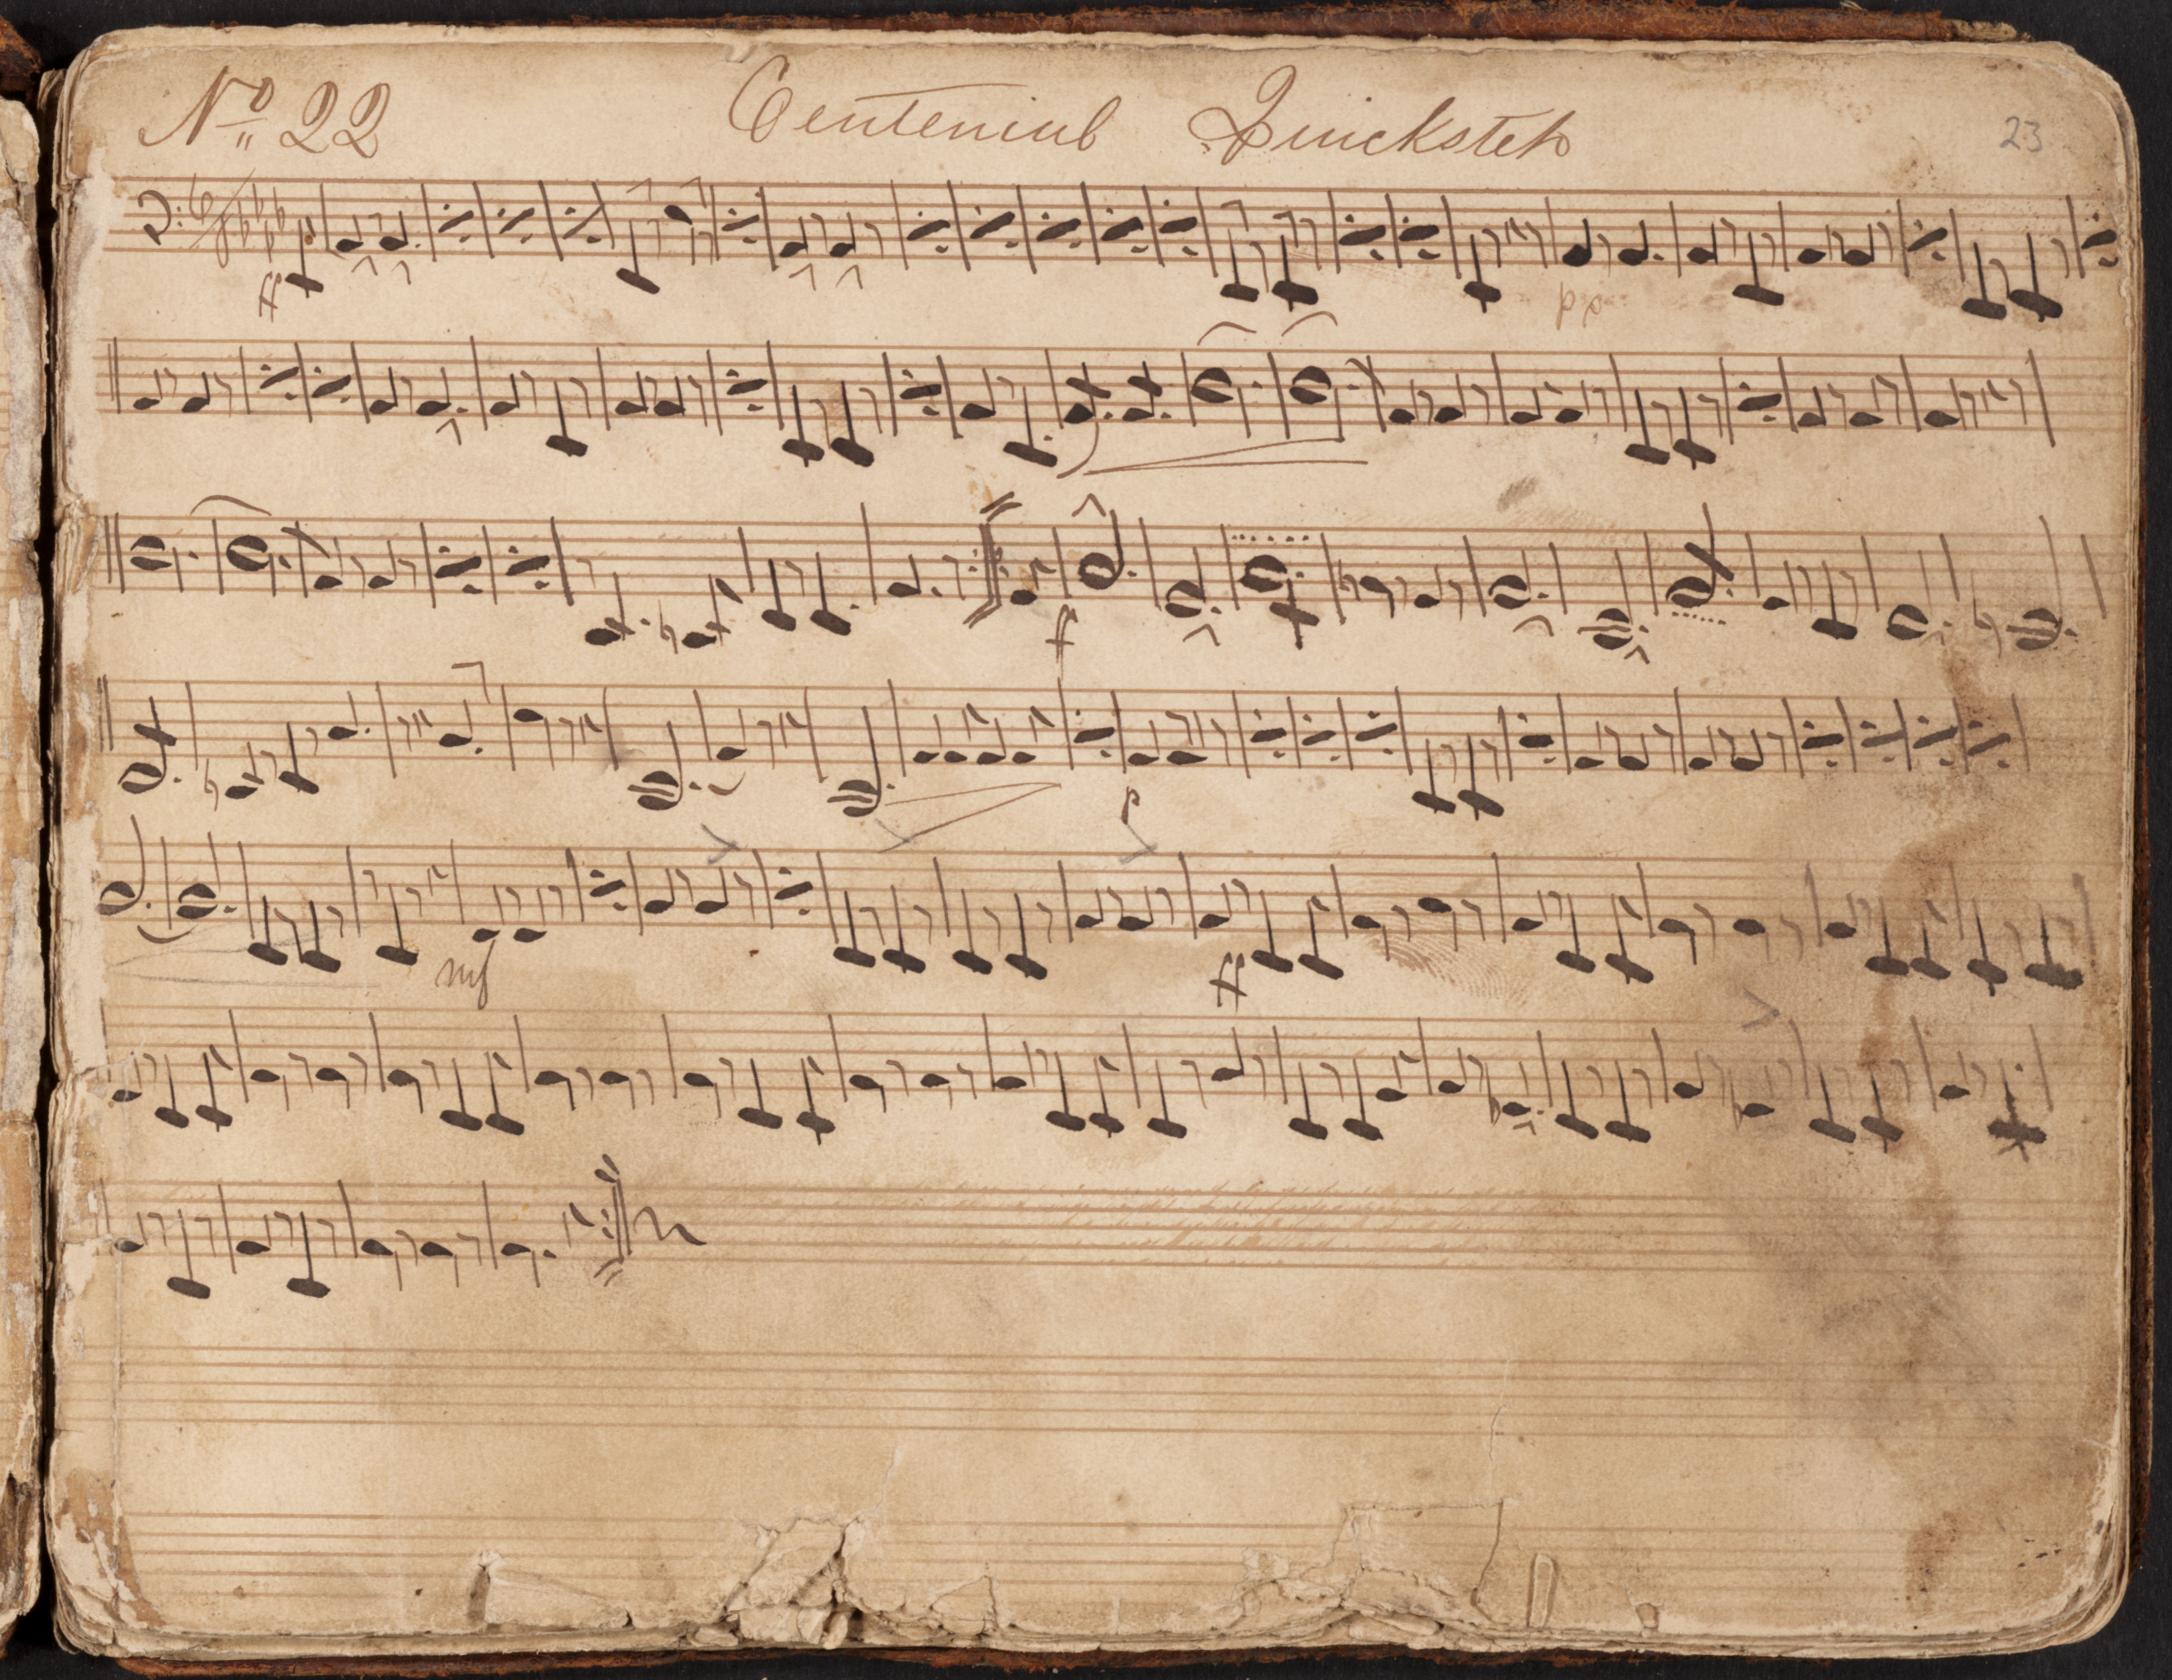 Nº 22 Centenial Quickstep 23
ff pp
f
p
mf ff